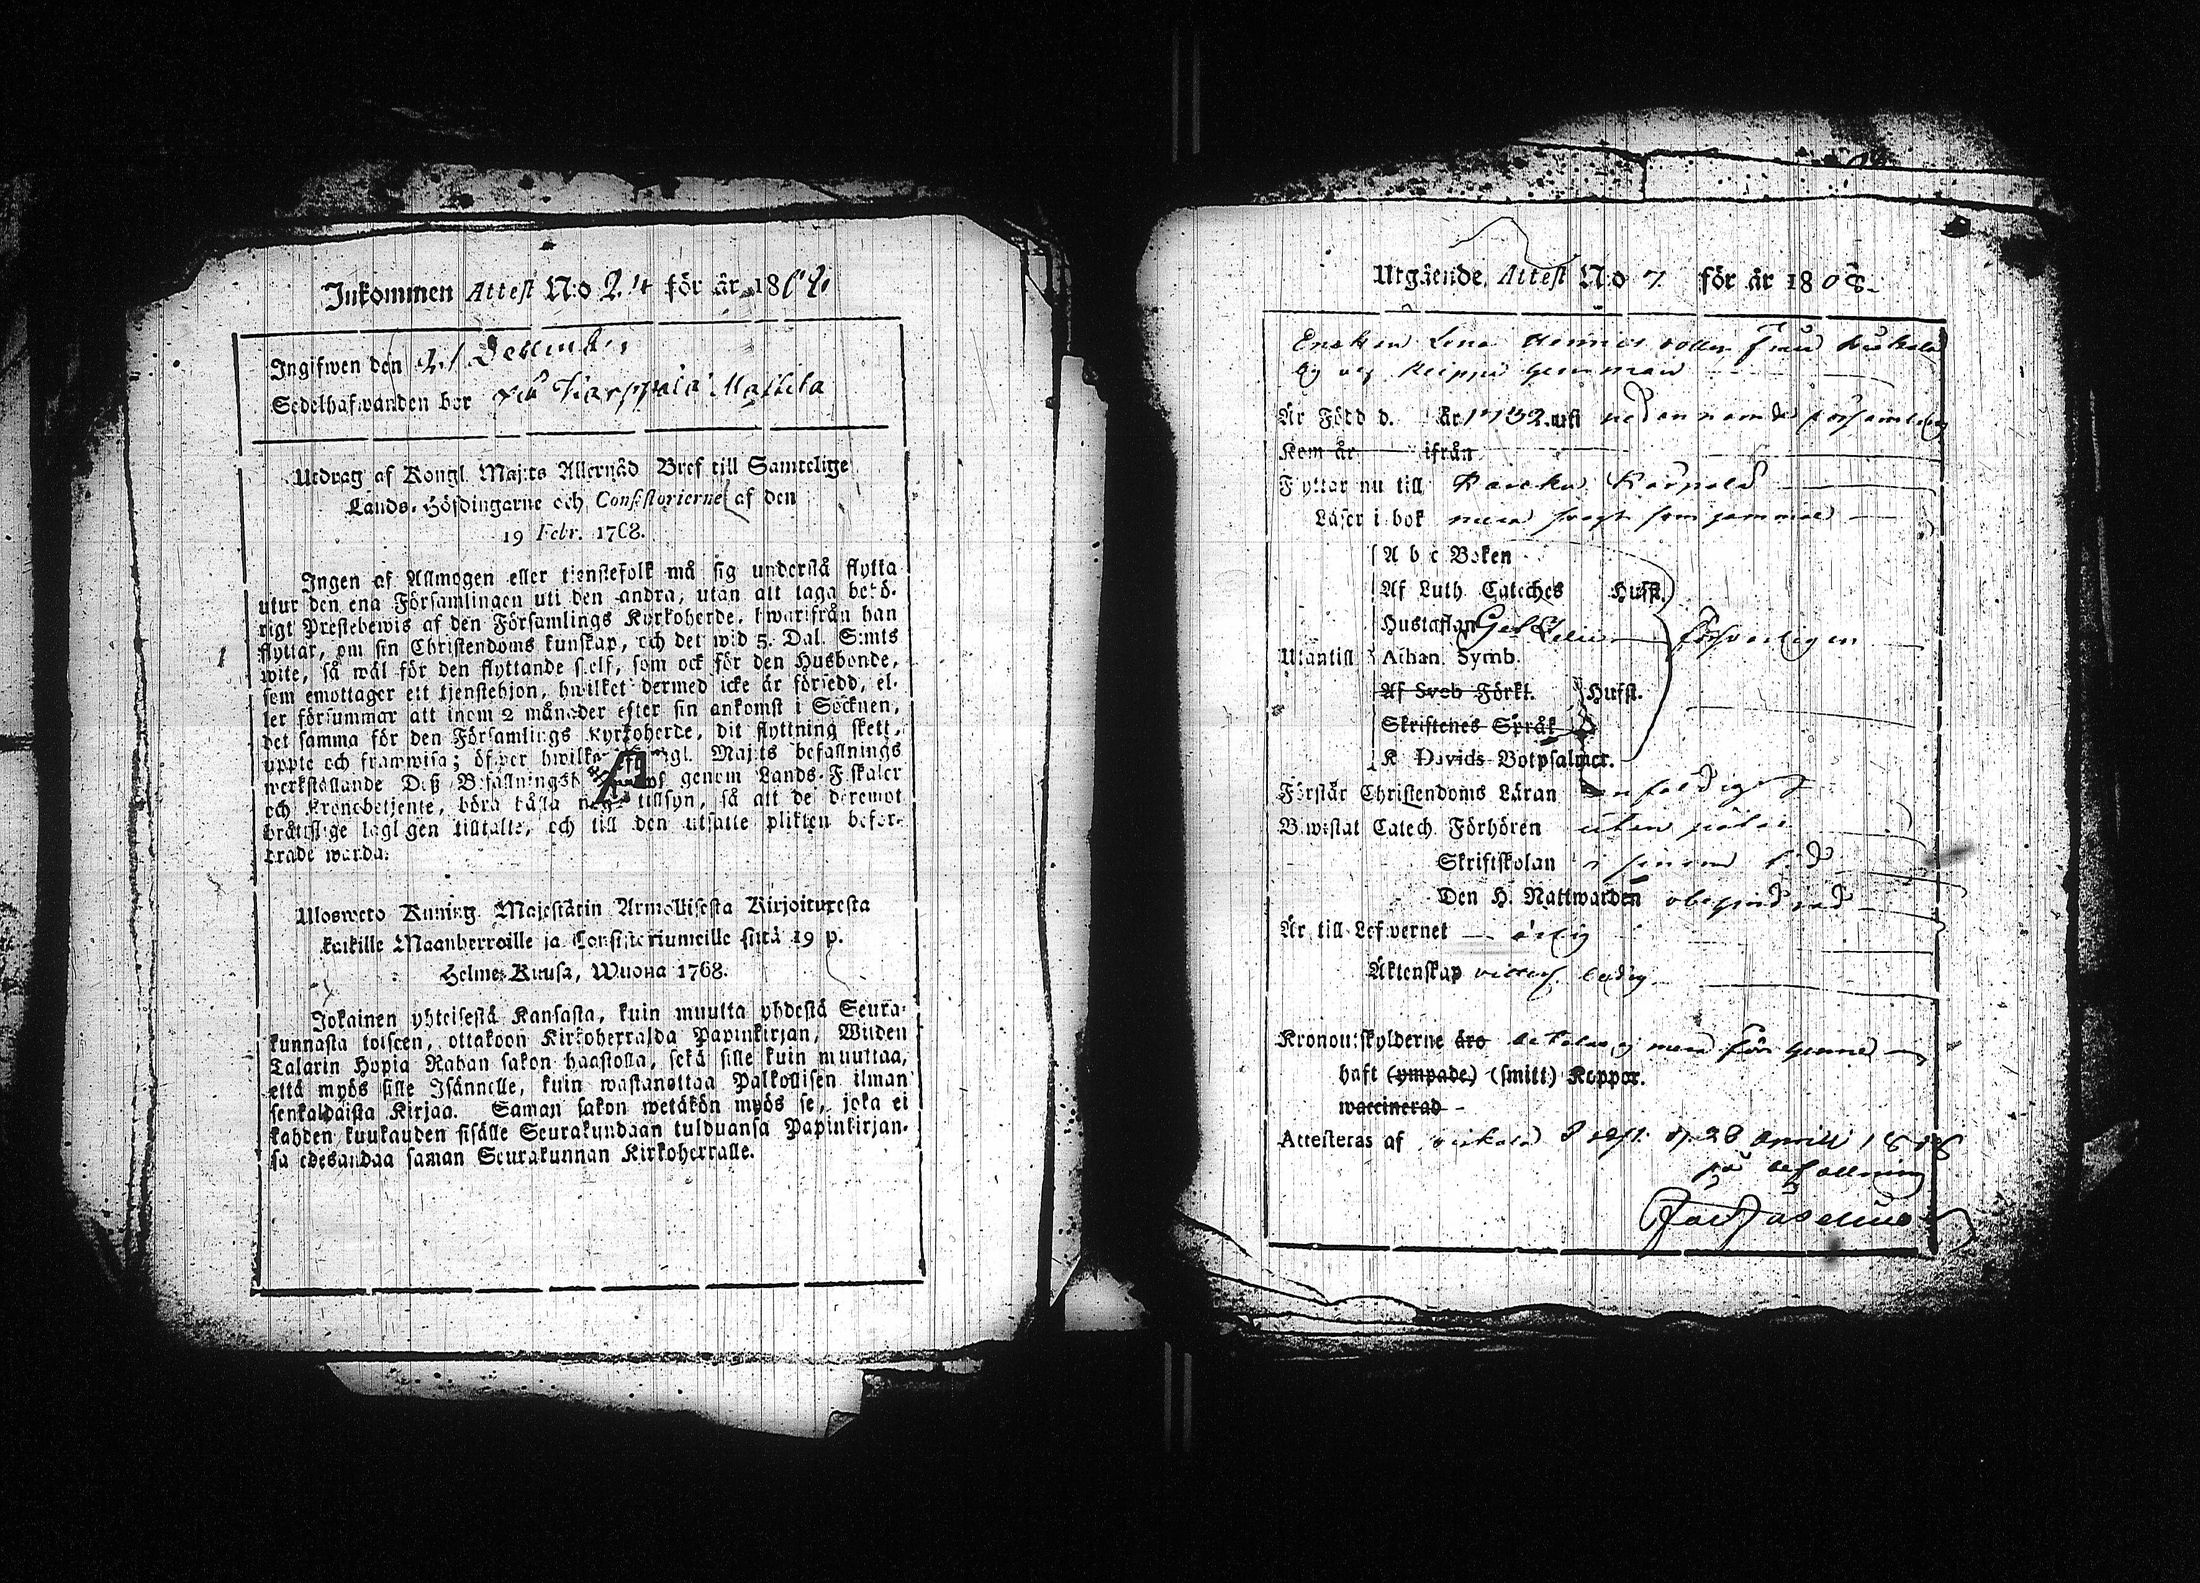 Inkommen Attest N:o 24 för år 18
Ingifwen den 21 December
Sedelhafwanden bor på Karppala Mattila
Utdrag af Kongl. Maj:ts Allernåd Bref till Samtelige
Lands-Höfdingarne och Consistorierne af den
19 Febr. 1768.
Ingen af Allmogen eller tienstefolk må sig understå flytta
utur den ena Församlingen uti den andra, utan att taga behö-
rigt Prestebewis af den Församlings Kyrkoherde, hwarifrån han
flyttar, om sin Christendoms kunskap, och det wid 5. Dal. S:mts
wite, så wäl för den flyttande sielf, som ock för den Husbonde,
som emottager ett tjenstehjon, hwilket dermed icke är försedd, el-
ler försummar att inom 2 månader efter sin ankomst i Socknen,
det samma för den Församlings Kyrkoherde, dit flyttning skett,
uppte och framwisa; öfwer hwilken Kongl. Maj:ts befallnings
werkställande Deß Befallningsh genom Lands-Fiskaler
och Kronobetjente, böra hålla noga tillsyn, så att de deremot
bråttslige lagligen tilltalte, och till den utsatte plikten befor-
drade warda.
Ulosweto Kuning. Majestätin Armollisesta Kirjoituxesta
kaikille Maanherroille ja Consistoriumeille siitä 19 p.
Helme-Kuusa, Wuona 1768.
Jokainen yhteisestä Kansasta, kuin muutta yhdestä Seura-
kunnasta toiseen, ottakoon Kirkoherralda Papinkirjan, Wiiden
Talarin Hopia Rahan sakon haastolla, sekä sille kuin muuttaa,
että myös sille Isännelle, kuin wastanottaa Palkollisen ilman
senkaldaista Kirjaa. Saman sakon wetäkön myös se, joka ei
kahden kuukauden sisälle Seurakundaan tulduansa Papinkirjan-
sa edesandaa saman Seurakunnan Kirkoherralle.
Utgående Attest N:o 7 för år 1808
Enckan Lena Henrics dotter från
by
Är Född d. år 1732 uti nedannämde församling
Kom år ifrån
Flyttar nu till
Läser i bok mera svagt som gammal
A b c Boken
Af Luth. Cateches Hufst.
Hustaflan försvarligen
Utantill Athan. Symb.
Af Sveb Förkl. Hufst.
Skriftenes Språk
K. Davids Botpsalmer.
Förstår Christendoms Läran enfaldigt
Bewistat Catech. Förhören utan
Skriftskolan i sinom tid
Den H. Nattwarden obehindrad
Är till Lefvernet ärlig
Äktenskap ledig
Kronoutskylderne äro betalas ej mera för henne
haft (ympade) (smitt) Koppor.
waccinerad
Attesteras af d. 28 Aprill 1808
på befallning